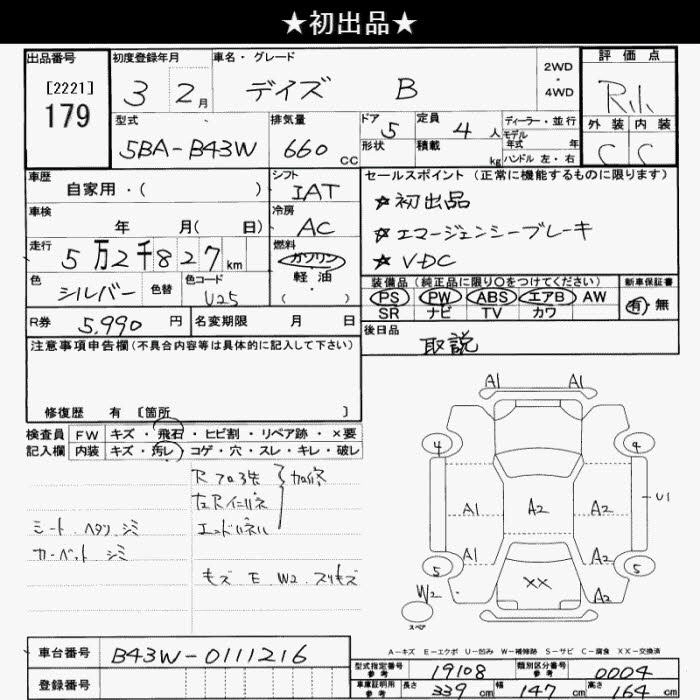 ★初出品★
出品番号 初度登録年月 車名・グレード 評価点
[2221] 179
3 2月 デイズ B 2WD・4WD R小
型式 排気量 ドア 5 定員 4人 ディーラー・並行 外装 内装
5BA-B43W 660cc 形状 積載 kg モデル年式 年 C C
ハンドル 左・右
車歴 シフト セールスポイント (正常に機能するものに限ります)
自家用・( ) IAT ★初出品
車検 冷房
年 月( 日) AC ★エマージェンシーブレーキ
走行 燃料
5万2千827km ガソリン ★VDC
色 色替 色コード 軽・油 装備品 (純正品に限り○をつけてください) 新車保証書
シルバー U25 ( ) PS PW ABS エアB AW 有・無
SR ナビ TV カワ
R券 5,990円 名変期限 月 日 後日品
注意事項申告欄(不具合内容等は具体的に記入して下さい) 取説
修復歴 有 [箇所 ]
検査員 FW キズ・飛石・ヒビ割・リペア跡・×要
記入欄 内装 キズ・汚レ・コゲ・穴・スレ・キレ・破レ
左Rインパネ
シート ヘタリ シミ エンドパネル
カーペット シミ
キズ E W2 スリキズ
A1 A1
4 4
A1 A2 A2 U1
A1 A2
5 XX 5
W2 A2
スペア
A-キズ E-エクボ U-凹み W-補修跡 S-サビ C-腐食 XX-交換済
車台番号 B43W-0111216 型式指定番号 参考 19108 類別区分番号 参考 0004
登録番号 車庫証明用 参考 長さ 339cm 幅 147cm 高さ 164cm